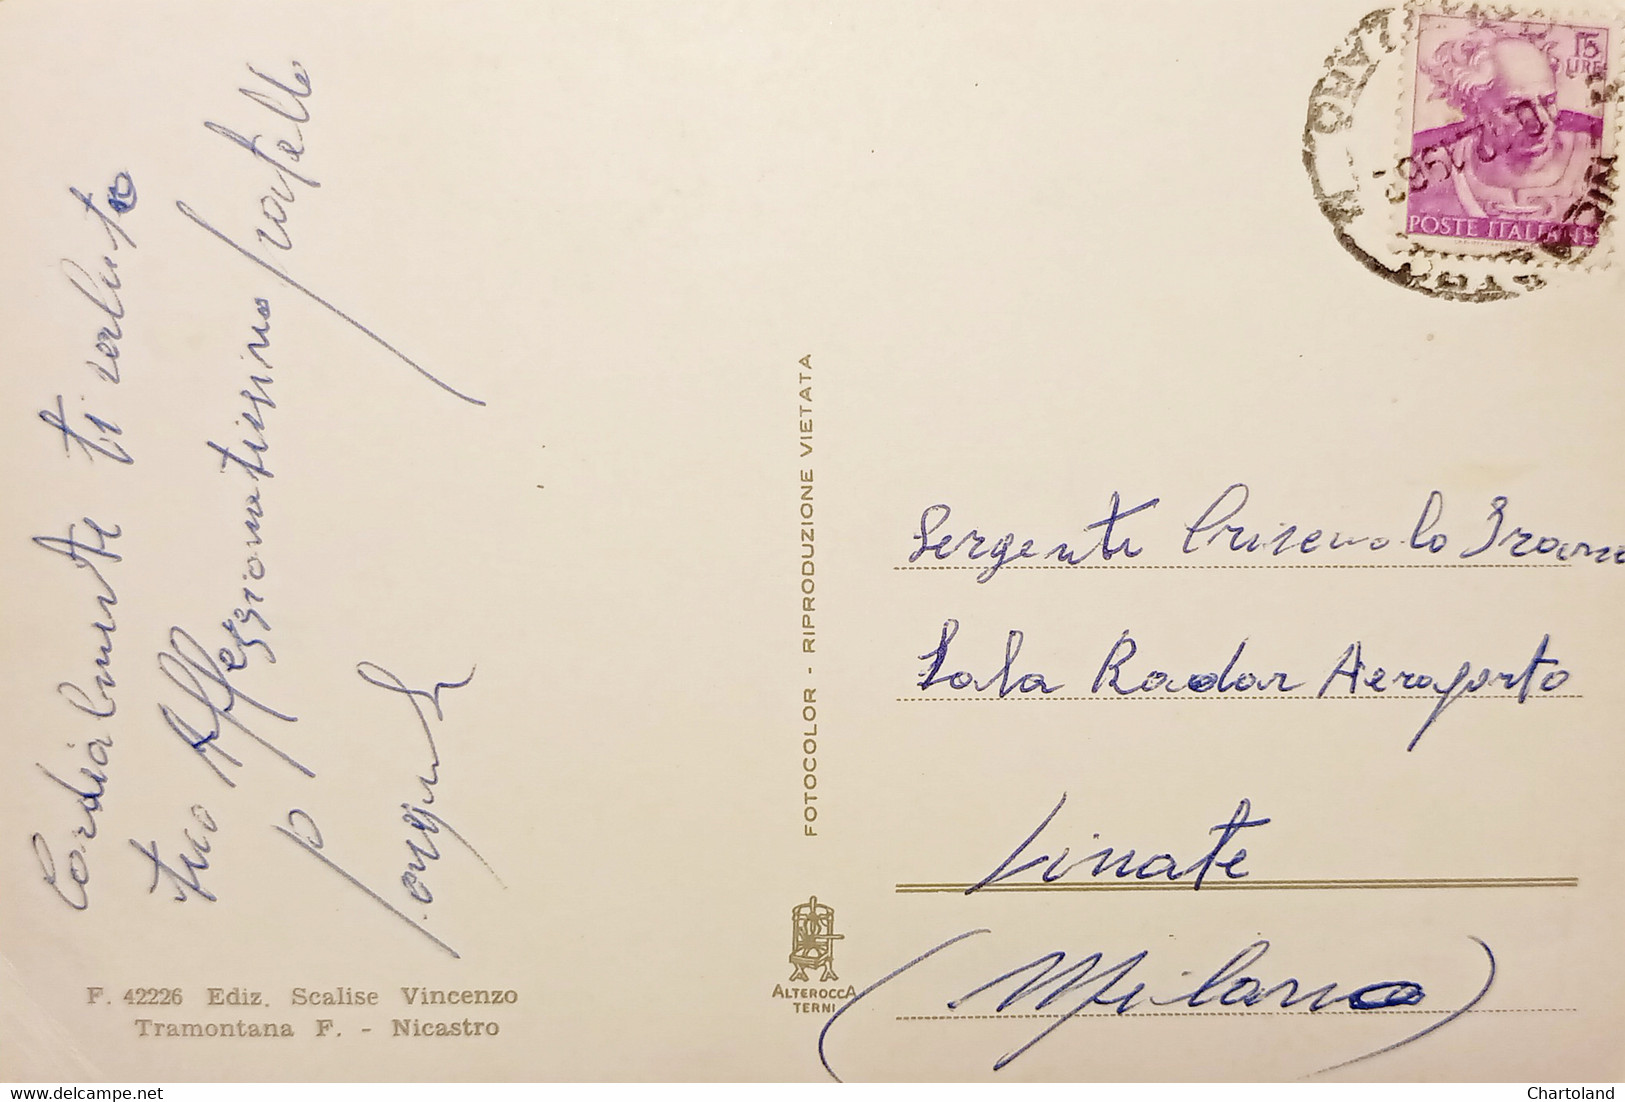 Cordialmente ti saluto
tuo Affezzionatissimo fratello
F. 42226 Ediz. Scalise Vincenzo
Tramontana F. - Nicastro
FOTOCOLOR - RIPRODUZIONE VIETATA
ALTEROCCA
TERNI
15
LIRE
POSTE ITALIANE
Sergente
Sala Radar Aeroporto
Linate
(Milano)
Chartoland